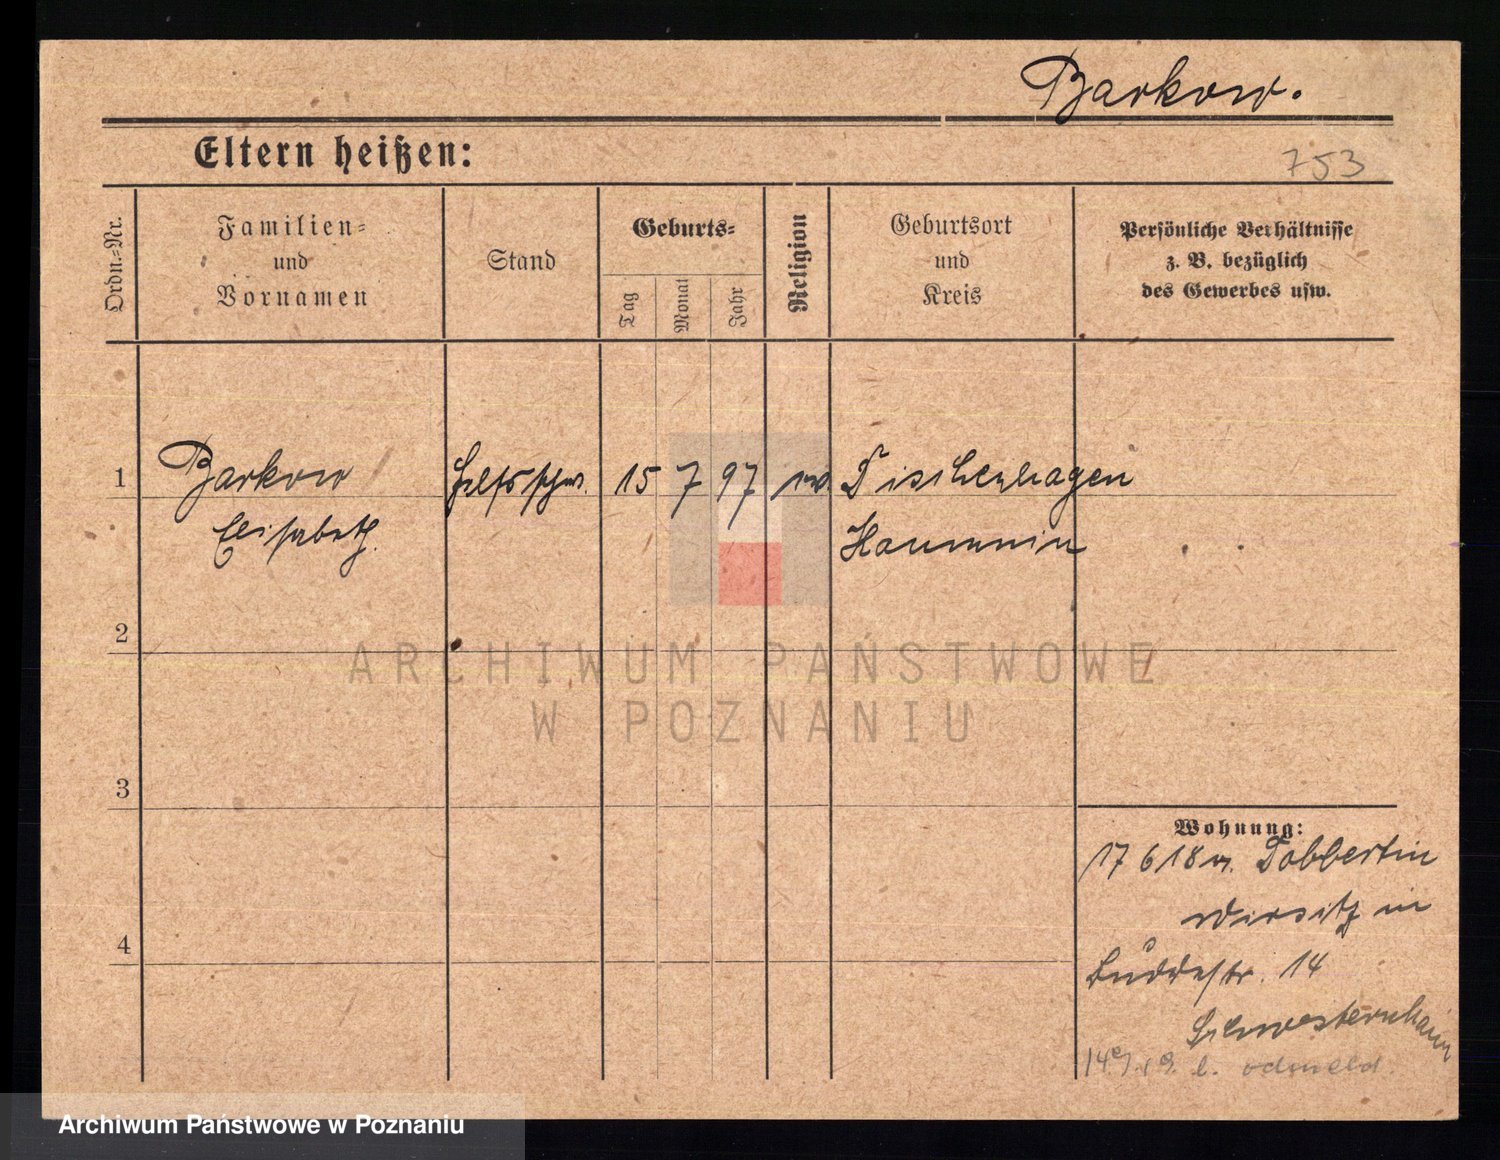 Barkow.
Eltern heißen:
753
Ordn.-Nr.
Familien-
und
Vornamen
Stand
Geburts-
Tag
Monat
Jahr
Religion
Geburtsort
und
Kreis
Persönliche Verhältnisse
z. B. bezüglich
des Gewerbes usw.
1 Barkow Hilfsschw. 15 7 97 ev.
Elisabeth
2
ARCHIWUM PAŃSTWOWE
W POZNANIU
3
Wohnung:
17 6 18 v. Dobbertin
Wirsitz in
14
Schwesternheim
4
Archiwum Państwowe w Poznaniu